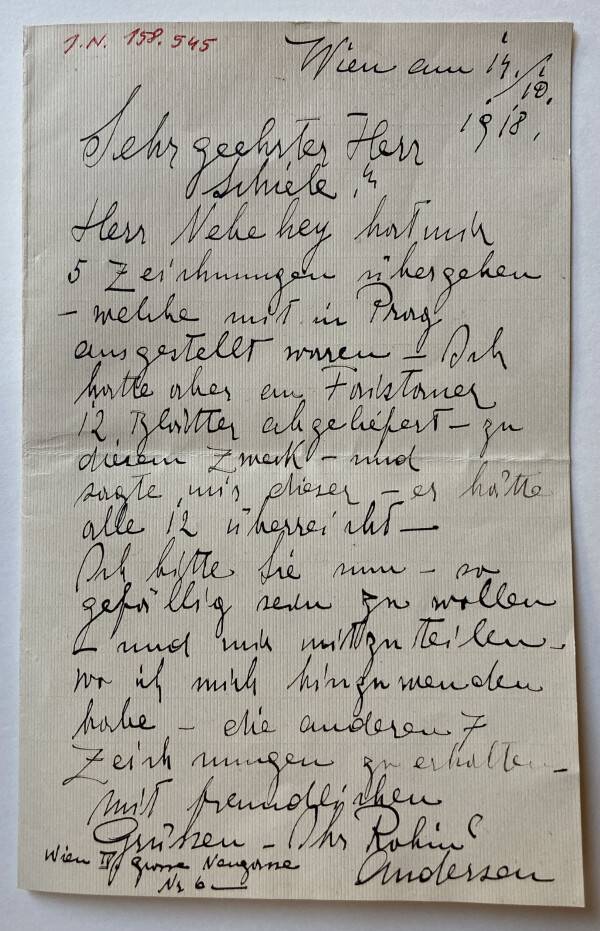 J.N. 158.545
Wien am 14./10.
1918.
Sehr geehrter Herr
Schiele!"
Herr Nebehey hat mir
5 Zeichnungen übergeben
– welche mit in Prag
ausgestellt waren – Ich
hatte aber an Faistauer
12 Blätter abgeliefert – zu
diesem Zweck – und
sagte mir dieser – er hätte
alle 12 überreicht –
Ich bitte Sie nun – so
gefällig sein zu wollen
– und mir mitzuteilen –
wo ich mich hinzuwenden
habe – die anderen 7
Zeichnungen zu erhalten –
mit freundlichen
Grüssen – Ihr Robin
Andersen
Wien IV, grosse Neugasse
Nr 6 –